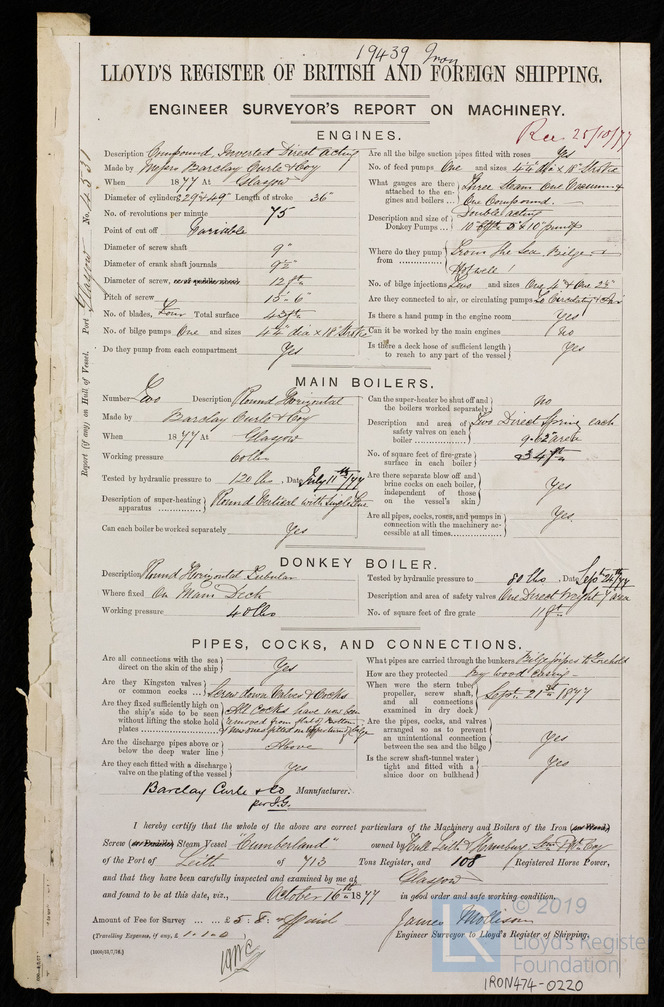 19439 Iron
LLOYD'S REGISTER OF BRITISH AND FOREIGN SHIPPING.
ENGINEER SURVEYOR'S REPORT ON MACHINERY.
Rec. 25/10/77
Report (if any) on Hull of Vessel. Port Glasgow No. 4531
ENGINES.
Description Compound, Inverted Direct acting
Made by Messrs Barclay Curle & Coy
When 1877 At Glasgow
Diameter of cylinders 29" & 49" Length of stroke 36"
No. of revolutions per minute 75
Point of cut off Variable
Diameter of screw shaft 9"
Diameter of crank shaft journals 9½"
Diameter of screw, or of paddle wheels 12 ft
Pitch of screw 15' 6"
No. of blades, Four Total surface 42 ft
No. of bilge pumps One and sizes 4¼" dia x 18" Stroke
Do they pump from each compartment Yes
Are all the bilge suction pipes fitted with roses Yes
No. of feed pumps One and sizes 4¼" dia x 18" Stroke
What gauges are there attached to the engines and boilers Three Steam One Vacuum & One Compound.
Description and size of Donkey Pumps Double acting
Where do they pump from From the Sea Bilge & Hotwell
No. of bilge injections Two and sizes One 4" & One 2½"
Are they connected to air, or circulating pumps To Circulating & Air
Is there a hand pump in the engine room Yes
Can it be worked by the main engines No
Is there a deck hose of sufficient length to reach to any part of the vessel Yes
MAIN BOILERS.
Number Two Description Round Horizontal
Made by Barclay Curle & Coy
When 1877 At Glasgow
Working pressure 60 lbs
Tested by hydraulic pressure to 120 lbs, Date July 11th/77
Description of super-heating apparatus Round Vertical with Single Flue
Can each boiler be worked separately Yes
Can the super-heater be shut off and the boilers worked separately No
Description and area of safety valves on each boiler Two Direct Spring each 9·62 area
No. of square feet of fire-grate surface in each boiler 34 ft
Are there separate blow off and brine cocks on each boiler, independent of those on the vessel's skin Yes
Are all pipes, cocks, roses, and pumps in connection with the machinery accessible at all times Yes
DONKEY BOILER.
Description Round Horizontal Tubular
Where fixed On Main Deck
Working pressure 40 lbs
Tested by hydraulic pressure to 80 lbs, Date Sept 24th/77
Description and area of safety valves One Direct Weight 7 area
No. of square feet of fire grate 11 ft
PIPES, COCKS, AND CONNECTIONS.
Are all connections with the sea direct on the skin of the ship Yes
Are they Kingston valves or common cocks Screw down Valves & Cocks
Are they fixed sufficiently high on the ship's side to be seen without lifting the stoke hold plates All Cocks have now been removed from flat of bottom
Are the discharge pipes above or below the deep water line Above
Are they each fitted with a discharge valve on the plating of the vessel Yes
What pipes are carried through the bunkers Bilge pipes to Forehold
How are they protected By wood casing
When were the stern tube, propeller, screw shaft, and all connections examined in dry dock Sept. 21st 1877
Are the pipes, cocks, and valves arranged so as to prevent an unintentional connection between the sea and the bilge Yes
Is the screw shaft-tunnel water tight and fitted with a sluice door on bulkhead Yes
Barclay Curle & Co Manufacturer.
per J.G.
I hereby certify that the whole of the above are correct particulars of the Machinery and Boilers of the Iron (or Wood)
Screw (or Paddle) Steam Vessel "Cumberland" owned by Hull Leith & Hamburg
of the Port of Leith of 713 Tons Register, and 108 Registered Horse Power,
and that they have been carefully inspected and examined by me at Glasgow
and found to be at this date, viz., October 16th 1877 in good order and safe working condition.
Amount of Fee for Survey £5. 8. paid
(Travelling Expenses, if any, £ 1-1-0 )
James Mollison
Engineer Surveyor to Lloyd's Register of Shipping.
© 2019
Lloyd's Register
Foundation
IRON474-0220